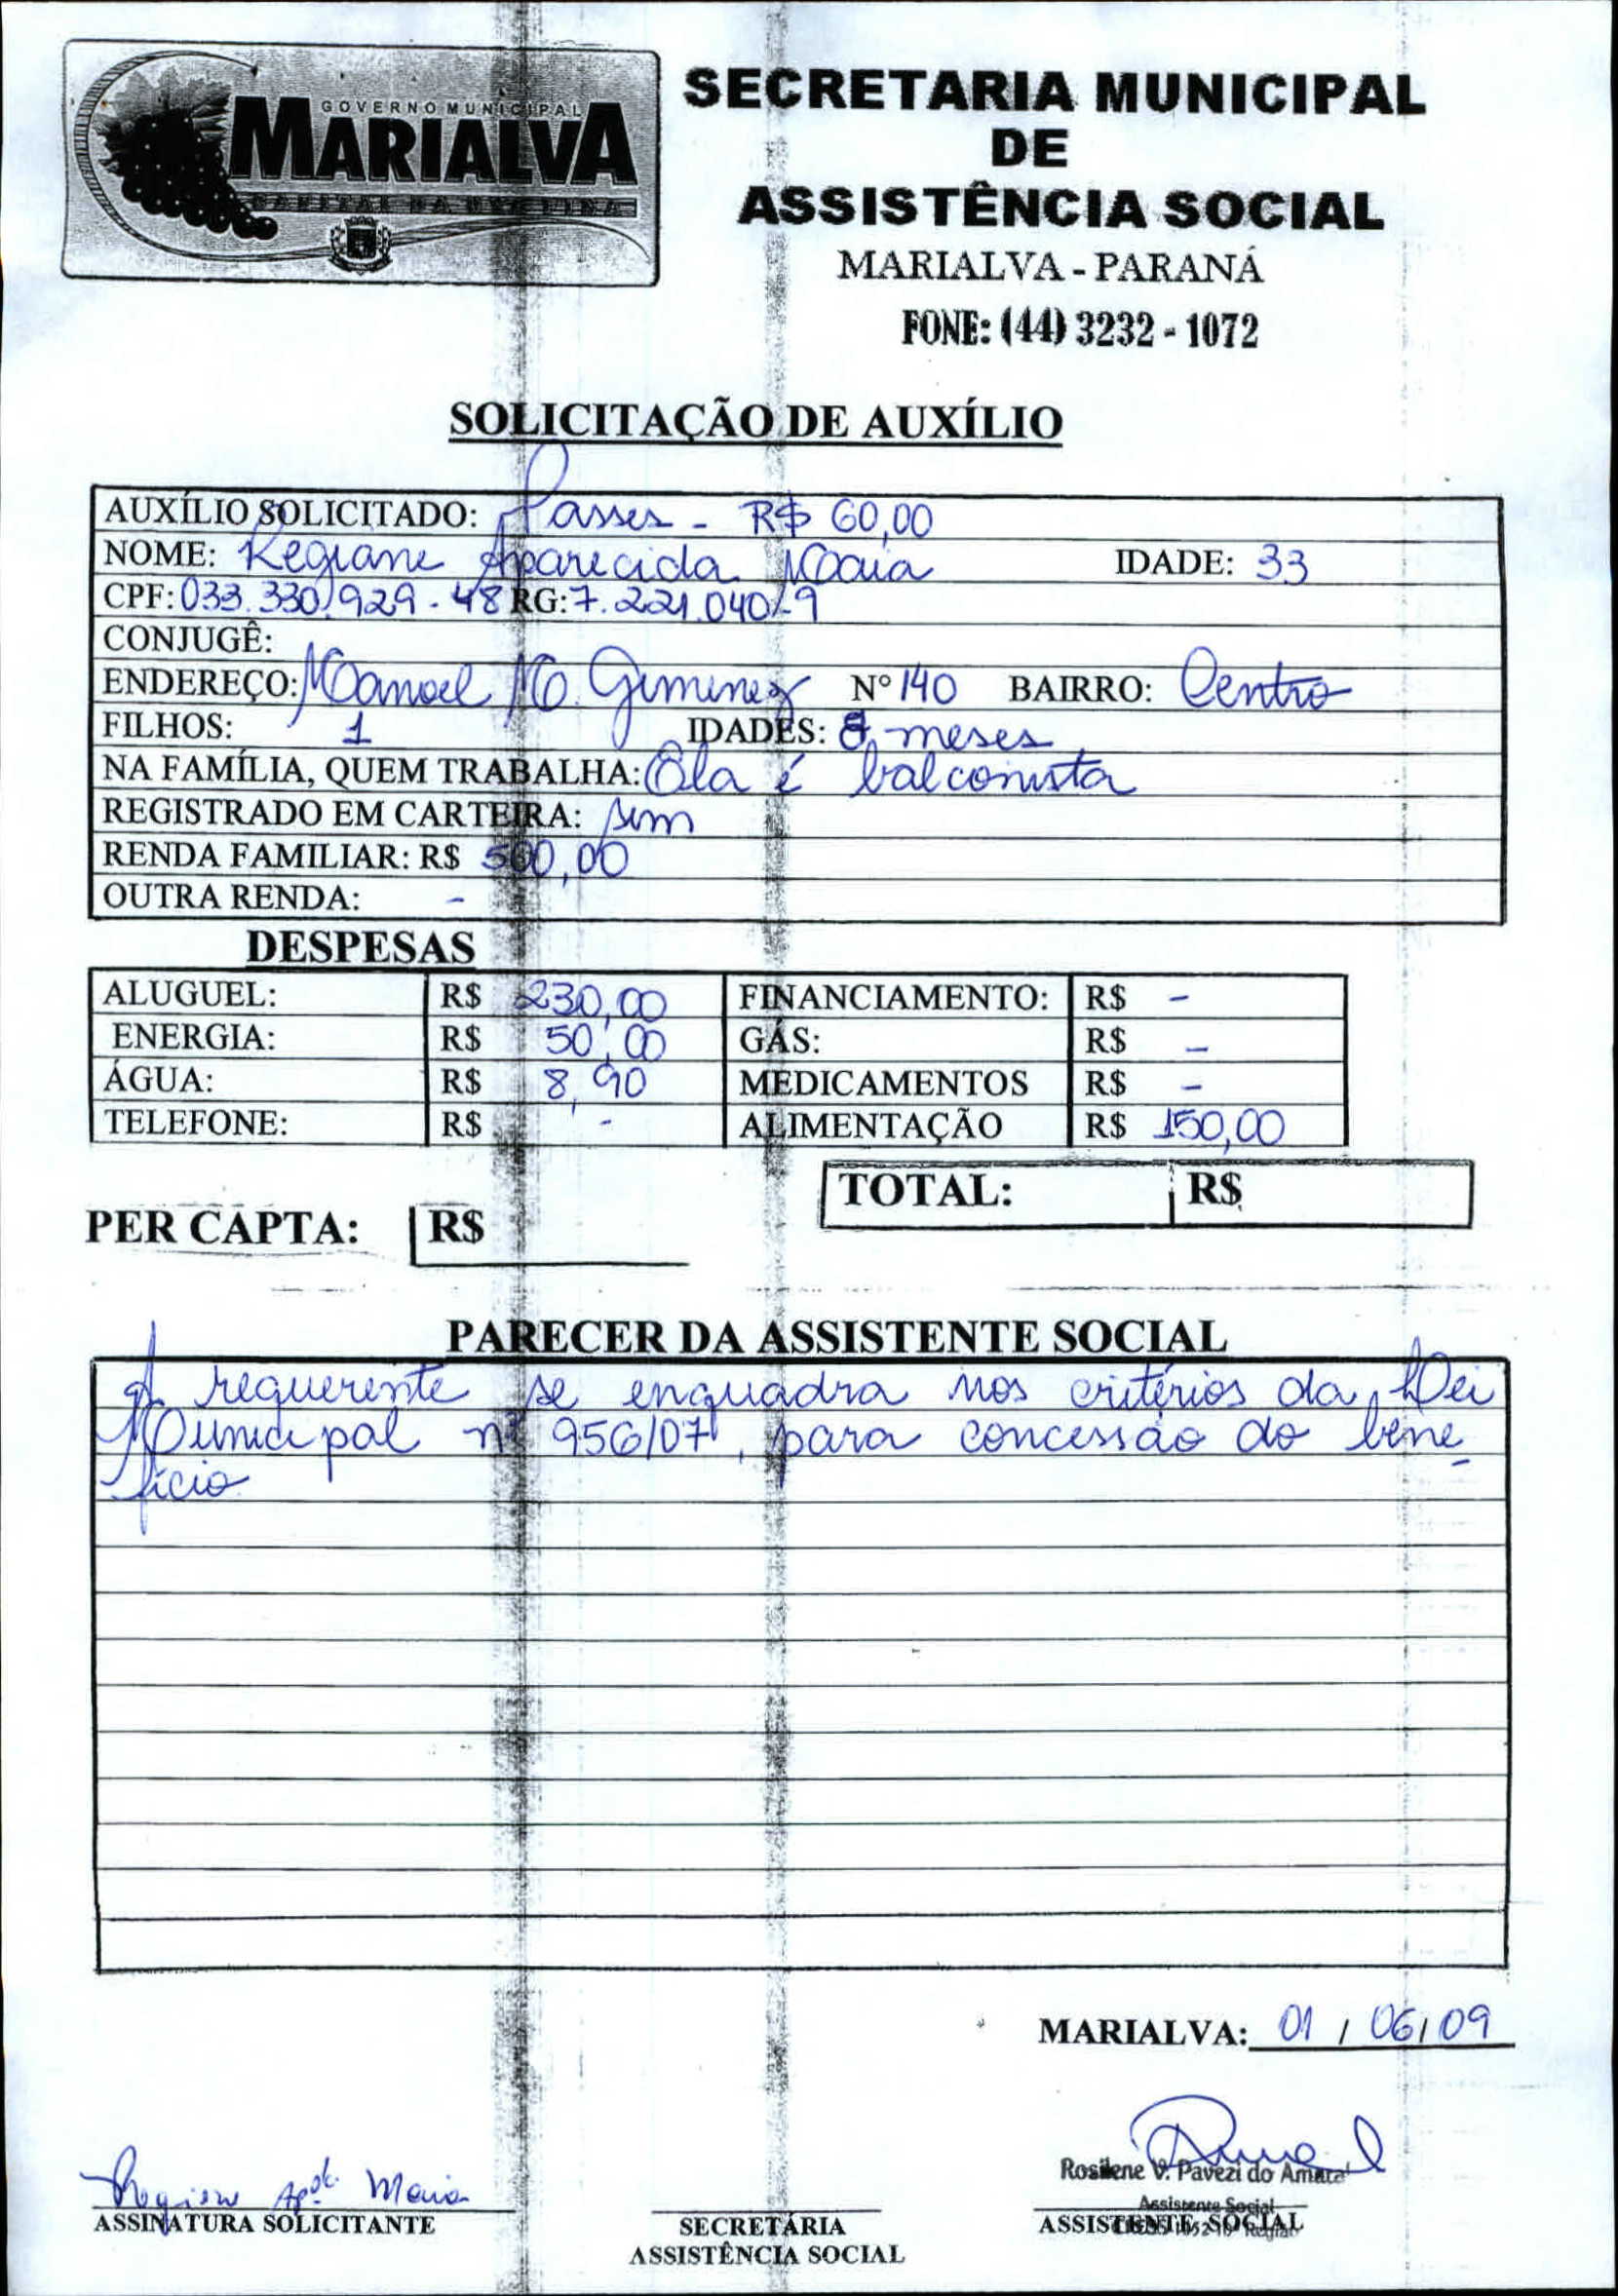 GOVERNO MUNICIPAL
MARIALVA
CAPITAL DA UVA FINA
SECRETARIA MUNICIPAL
DE
ASSISTÊNCIA SOCIAL
MARIALVA - PARANÁ
FONE: (44) 3232 - 1072
SOLICITAÇÃO DE AUXÍLIO
AUXÍLIO SOLICITADO: Passes - R$ 60,00
NOME: Regiane Aparecida Maia IDADE: 33
CPF: 033.330.929-48 RG: 7.221.040-9
CONJUGÊ:
ENDEREÇO: Manoel M. Gimenez Nº 140 BAIRRO: Centro
FILHOS: 1 IDADES: 8 meses
NA FAMÍLIA, QUEM TRABALHA: Ela é balconista
REGISTRADO EM CARTEIRA: sim
RENDA FAMILIAR: R$ 500,00
OUTRA RENDA: -
DESPESAS
ALUGUEL: R$ 230,00 FINANCIAMENTO: R$ -
ENERGIA: R$ 50,00 GÁS: R$ -
ÁGUA: R$ 8,90 MEDICAMENTOS R$ -
TELEFONE: R$ - ALIMENTAÇÃO R$ 150,00
TOTAL: R$
PER CAPTA: R$
PARECER DA ASSISTENTE SOCIAL
A requerente se enquadra nos critérios da Lei
Municipal nº 956/07, para concessão do bene
fício
MARIALVA: 01 / 06 / 09
Regiane Apda. Maia
Rosilene V. Pavezi do Amaral
Assistente Social
ASSINATURA SOLICITANTE
SECRETÁRIA
ASSISTÊNCIA SOCIAL
ASSISTENTE SOCIAL